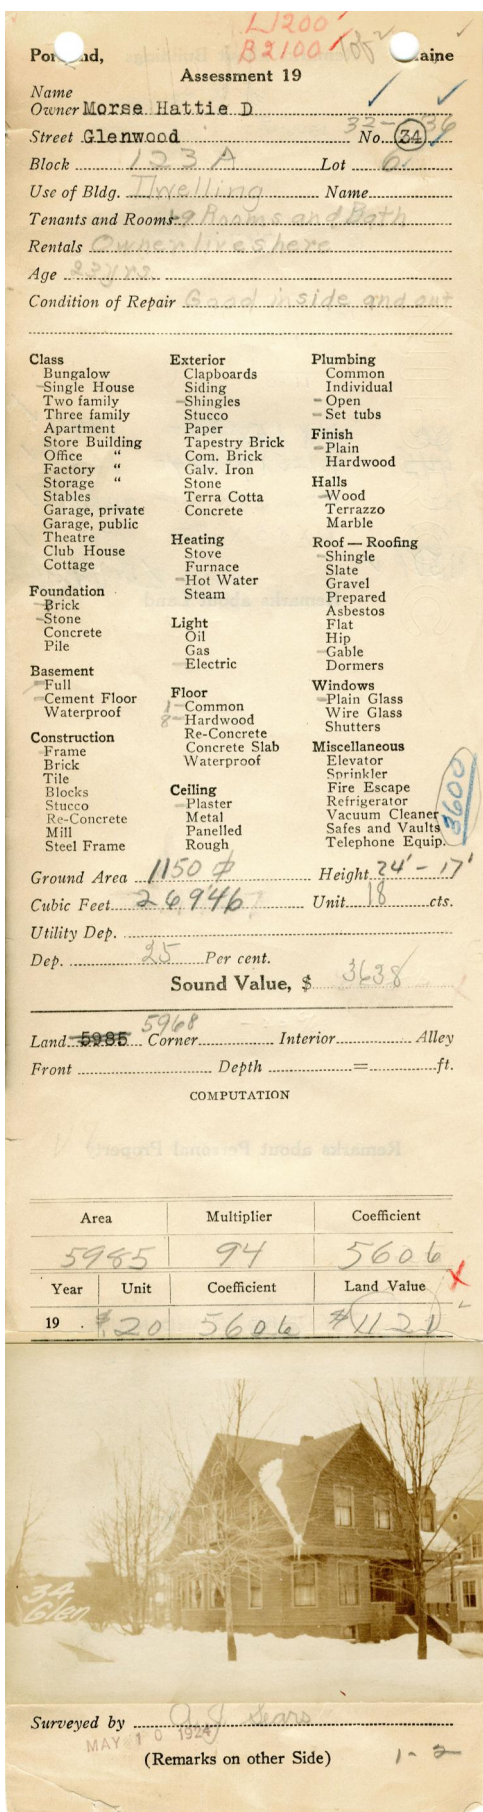 L1200
B2100
Portland, Maine
Assessment 19
Name
Owner Morse Hattie D
32-36
Street Glenwood No. 34
Block 123 A Lot 6
Use of Bldg. Dwelling Name
Tenants and Rooms 1-9 Rooms and Bath
Rentals Owner lives here
Age 23 yrs
Condition of Repair Good inside and out
Class
Bungalow
-Single House
Two family
Three family
Apartment
Store Building
Office "
Factory "
Storage "
Stables
Garage, private
Garage, public
Theatre
Club House
Cottage
Foundation
-Brick
-Stone
Concrete
Pile
Basement
-Full
-Cement Floor
Waterproof
Construction
-Frame
Brick
Tile
Blocks
Stucco
Re-Concrete
Mill
Steel Frame
Exterior
Clapboards
Siding
-Shingles
Stucco
Paper
Tapestry Brick
Com. Brick
Galv. Iron
Stone
Terra Cotta
Concrete
Heating
Stove
Furnace
-Hot Water
Steam
Light
Oil
Gas
-Electric
Floor
1-Common
8-Hardwood
Re-Concrete
Concrete Slab
Waterproof
Ceiling
-Plaster
Metal
Panelled
Rough
Plumbing
Common
Individual
-Open
-Set tubs
Finish
-Plain
Hardwood
Halls
-Wood
Terrazzo
Marble
Roof — Roofing
-Shingle
Slate
Gravel
Prepared
Asbestos
Flat
Hip
-Gable
Dormers
Windows
-Plain Glass
Wire Glass
Shutters
Miscellaneous
Elevator
Sprinkler
Fire Escape
Refrigerator
Vacuum Cleaner
Safes and Vaults
Telephone Equip.
3600
Ground Area 1150 Height 24' - 17'
Cubic Feet 26946 Unit 18 cts.
Utility Dep.
Dep. 25 Per cent.
Sound Value, $ 3638
5968
Land 5985 Corner Interior Alley
Front Depth = ft.
COMPUTATION
Area Multiplier Coefficient
5985 94 5606
Year Unit Coefficient Land Value
19 . $20 5606 $1121
34
Glen
Surveyed by A J Sears
MAY 10 1924
(Remarks on other Side)
1-2